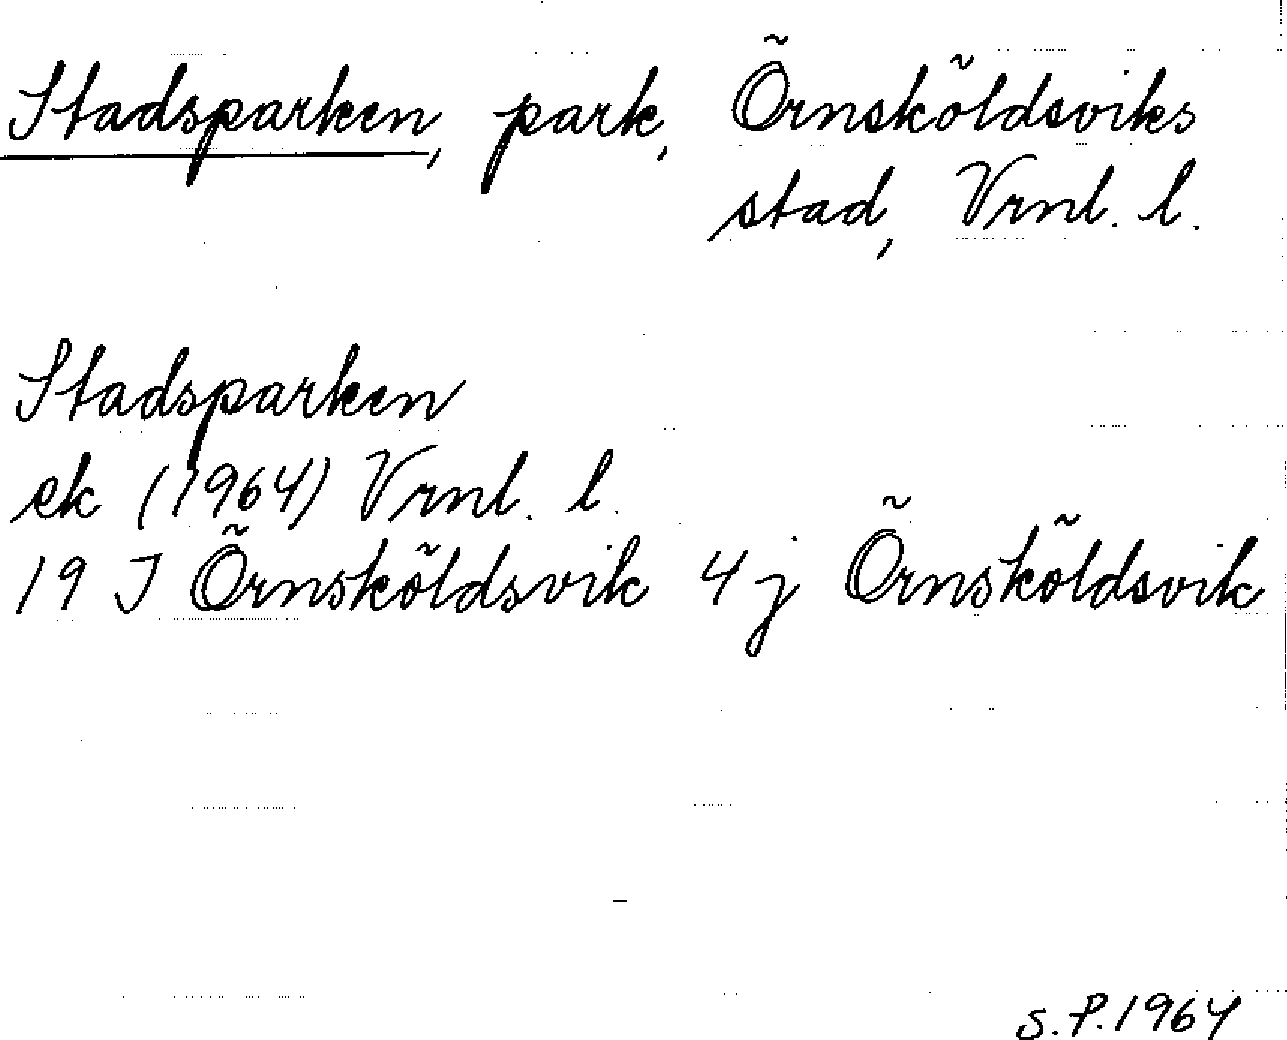 Stadsparken, park, Örnsköldsviks
stad, Vrnl. l.
Stadsparken
ek (1964) Vrnl. l.
19 J Örnsköldsvik 4 j Örnsköldsvik
S.P. 1964